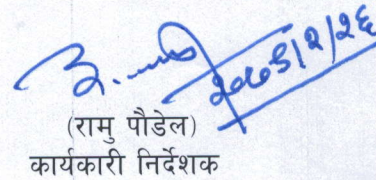 २०७९/२/२६
(रामु पौडेल)
कार्यकारी निर्देशक